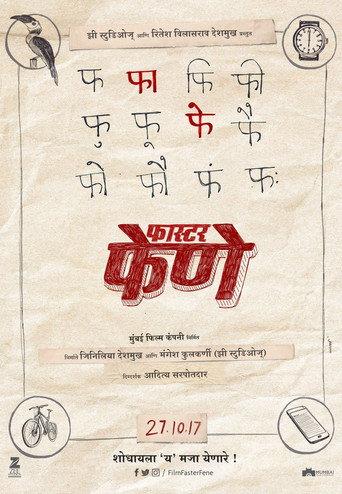 झी स्टुडिओज् आणि रितेश विलासराव देशमुख प्रस्तुत
फ फा फि फी
फु फू फे फै
फो फौ फं फः
फास्टर
फेणे
मुंबई फिल्म कंपनी निर्मित
निर्माते जिनिलिया देशमुख आणि मंगेश कुलकर्णी (झी स्टुडिओज्)
दिग्दर्शक आदित्य सरपोतदार
27.10.17
शोधायला 'य' मजा येणारे !
/FilmFasterFene
Z
MUMBAI